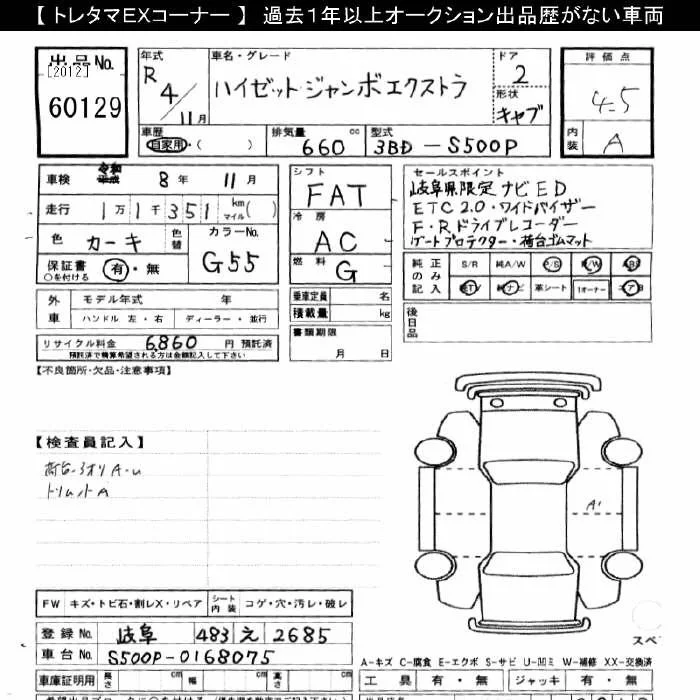 【 トレタマEXコーナー 】 過去1年以上オークション出品歴がない車両
出品No.
[2012]
60129
年式
R 4/11月
車名・グレード
ハイゼットジャンボエクストラ
ドア
2
形状
キャブ
評価点
4.5
内装
A
車歴
自家用・( )
排気量
660 cc
型式
3BD-S500P
車検
令和 8年 11月
走行
1万1千351 km マイル( )
色
カーキ
色替
カラーNo.
G55
保証書
○を付ける
有・無
シフト
FAT
冷房
AC
燃料
G
セールスポイント
岐阜県限定ナビED
ETC2.0・ワイドバイザー
F・Rドライブレコーダー
ゲートプロテクター・荷台ゴムマット
純正のみ記入
S/R 純A/W P/S P/W ABS
純TV 純ナビ 革シート 1オーナー エアB
外車
モデル年式 年
ハンドル 左・右 ディーラー・並行
乗車定員 名
積載量 kg
後日品
リサイクル料金 6,860 円 預託済
預託済で精算希望される方は金額記入して下さい
書類期限
月 日
【不良箇所・欠品・注意事項】
【検査員記入】
荷台・ヨオリA-U
トリムットA
A1
FW キズ・トビ石・割レX・リペア シート内装 コゲ・穴・汚レ・破レ
登録No. 岐阜 483 え 2685
車台No. S500P-0168075
スペ
A-キズ C-腐食 E-エクボ S-サビ U-凹ミ W-補修 XX-交換済
車庫証明用 長さ cm 幅 cm 高さ cm
工具 有・無 ジャッキ 有・無